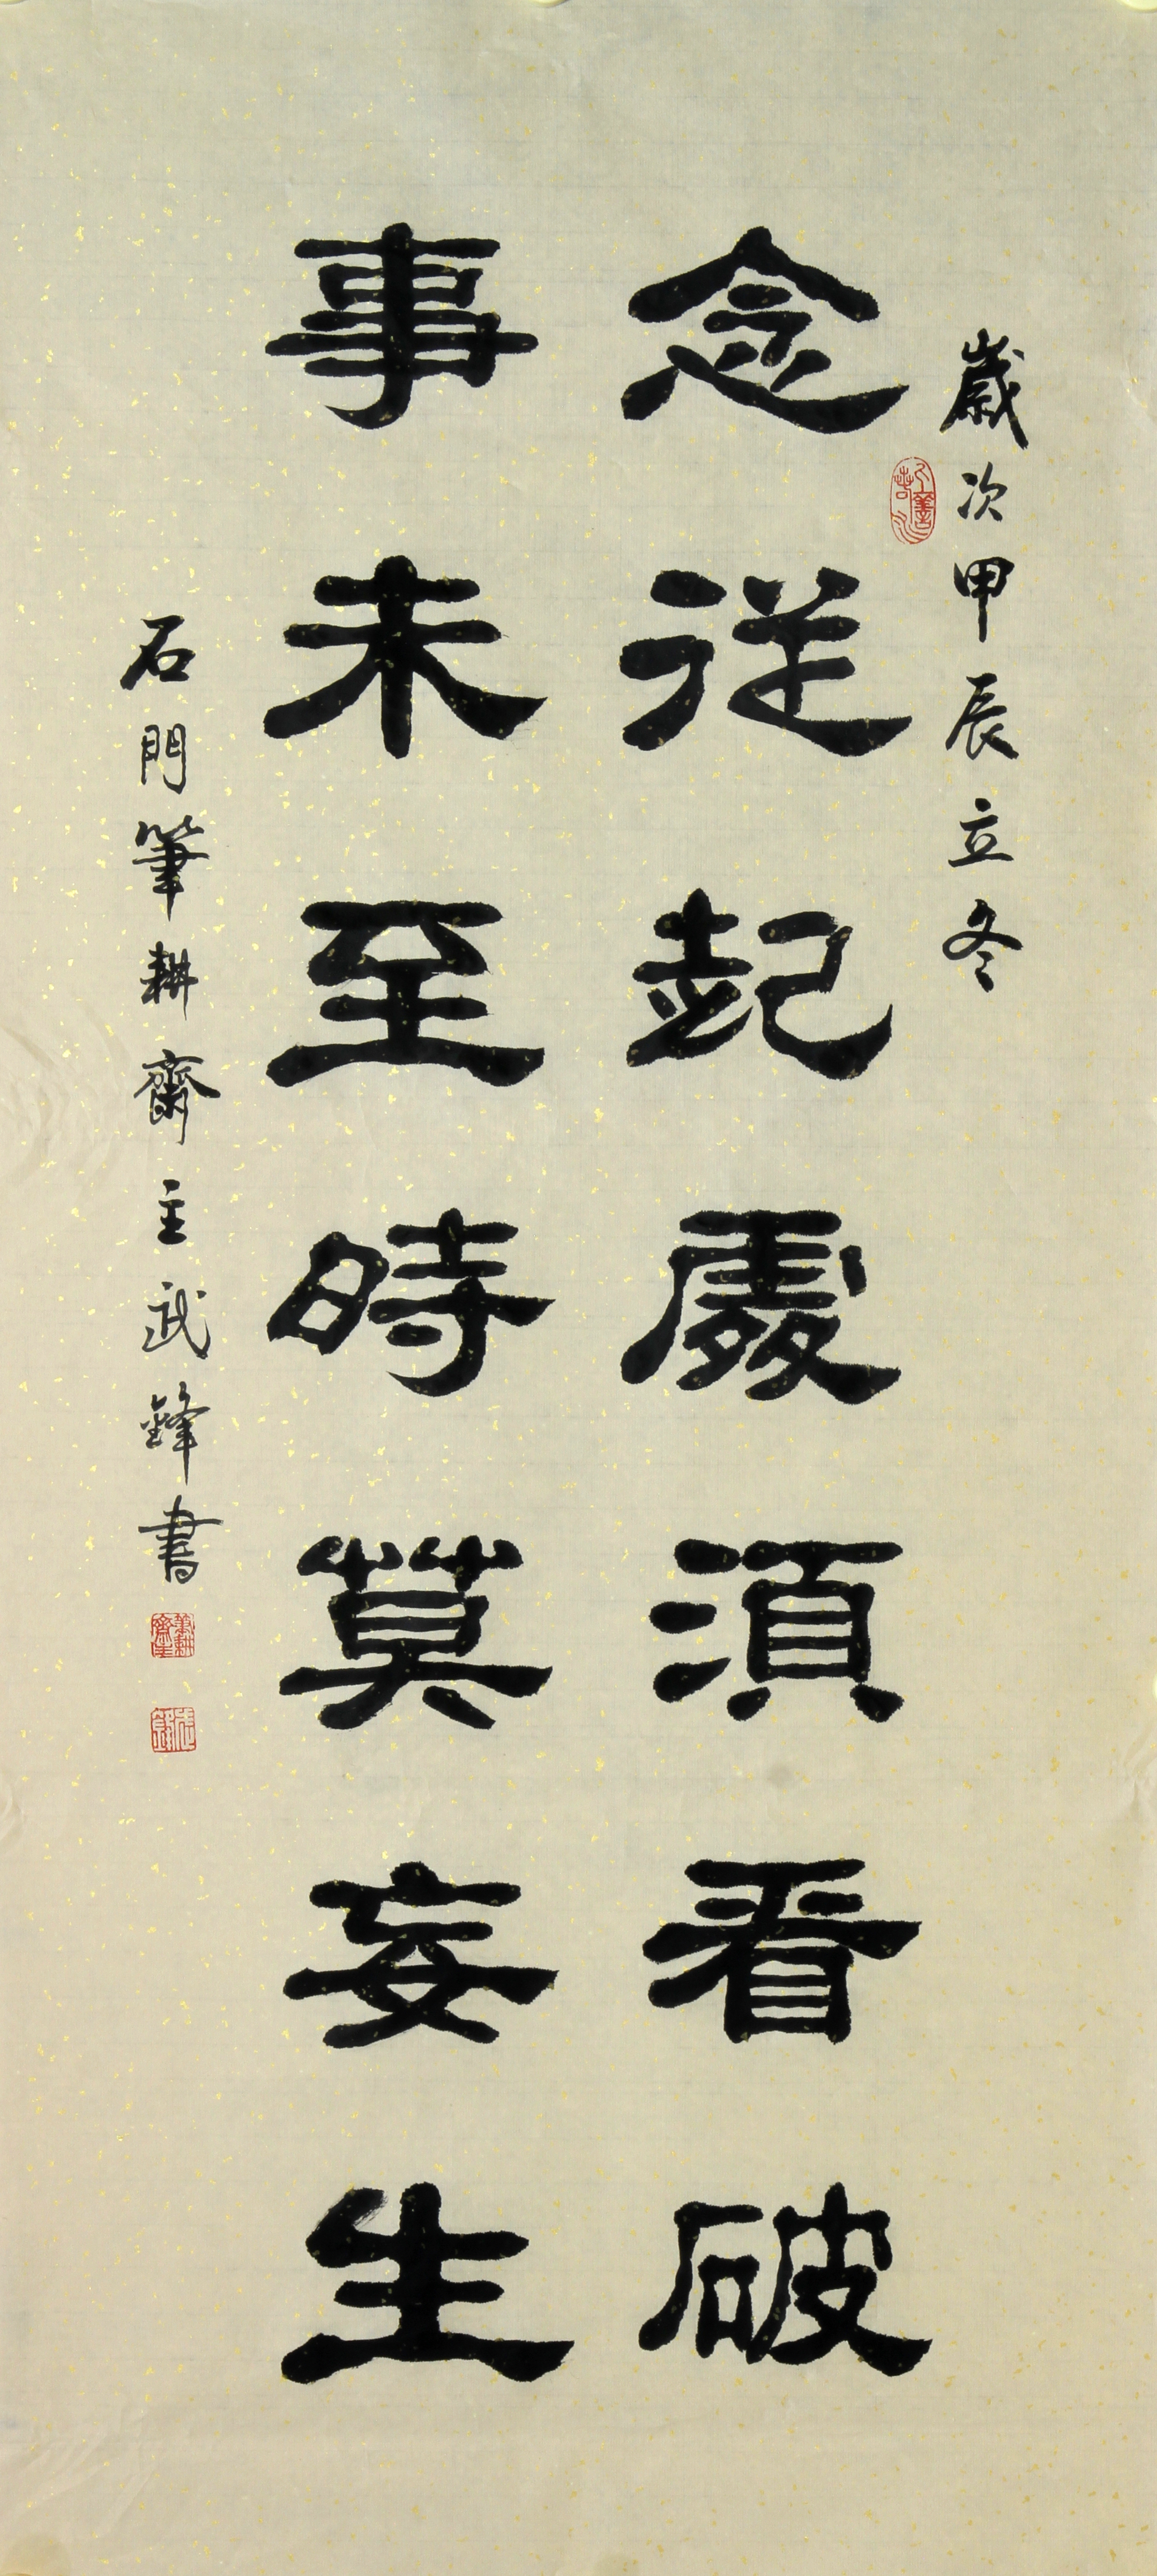 歲次甲辰立冬
念從起處須看破
事未至時莫妄生
石門筆耕齋主武鋒書
筆耕齋主